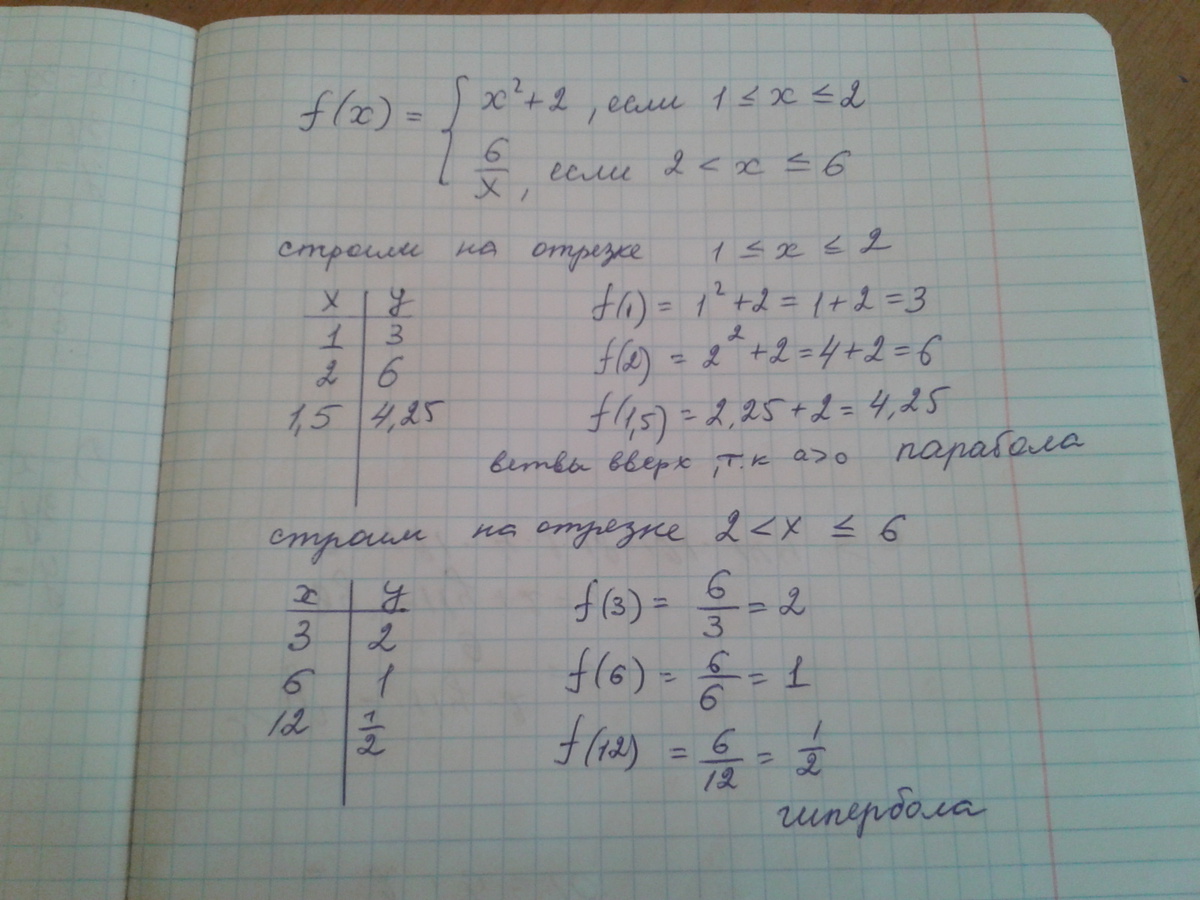 f(x) = { x² + 2 , если 1 ≤ x ≤ 2
6/x , если 2 < x ≤ 6
строим на отрезке 1 ≤ x ≤ 2
x | y
1 | 3 f(1) = 1² + 2 = 1 + 2 = 3
2 | 6 f(2) = 2² + 2 = 4 + 2 = 6
1,5 | 4,25 f(1,5) = 2,25 + 2 = 4,25
ветвы вверх , т.к a>0 парабола
строим на отрезке 2 < x ≤ 6
x | y
3 | 2 f(3) = 6/3 = 2
6 | 1 f(6) = 6/6 = 1
12 | 1/2 f(12) = 6/12 = 1/2
гипербола